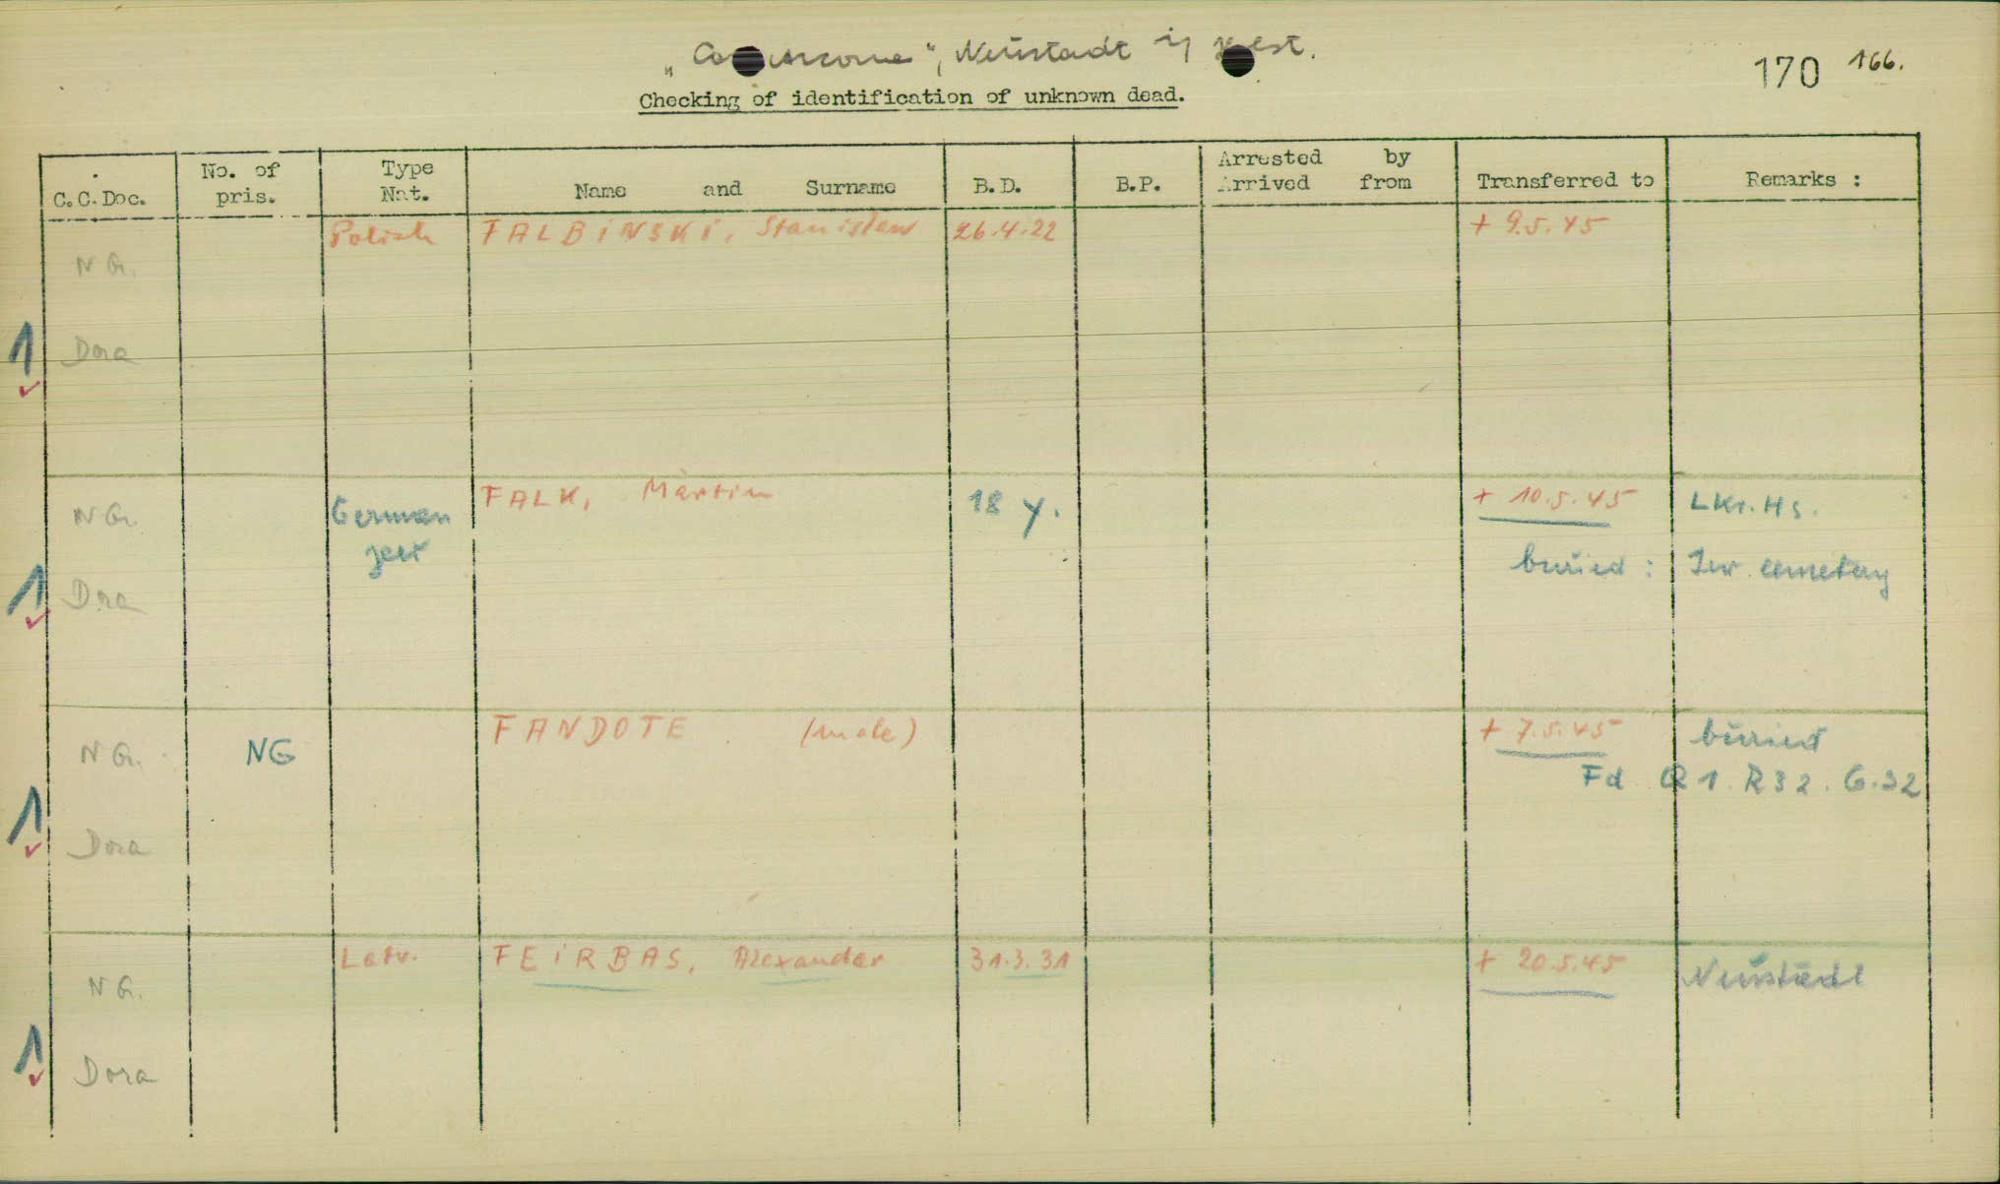 „ Neustadt i/ Holst.
170 166.
Checking of identification of unknown dead.
C.C.Doc. No. of pris. Type Nat. Name and Surname B.D. B.P. Arrested by Arrived from Transferred to Remarks :
Polish FALBiNSKi, Stanislaw 26.4.22 + 9.5.45
N G.
1 Dora
N G. German FALK, Martin 18 y. + 10.5.45 LKr. Hs.
jew buried : Jew. cemetery
1 Dora
N G. NG FANDOTE (male) + 7.5.45 buried
Fd Q 1. R 32. G. 32
1 Dora
Latv. FEiRBAS, Alexander 31.3.31 + 20.5.45 Neustadt
N G.
1 Dora